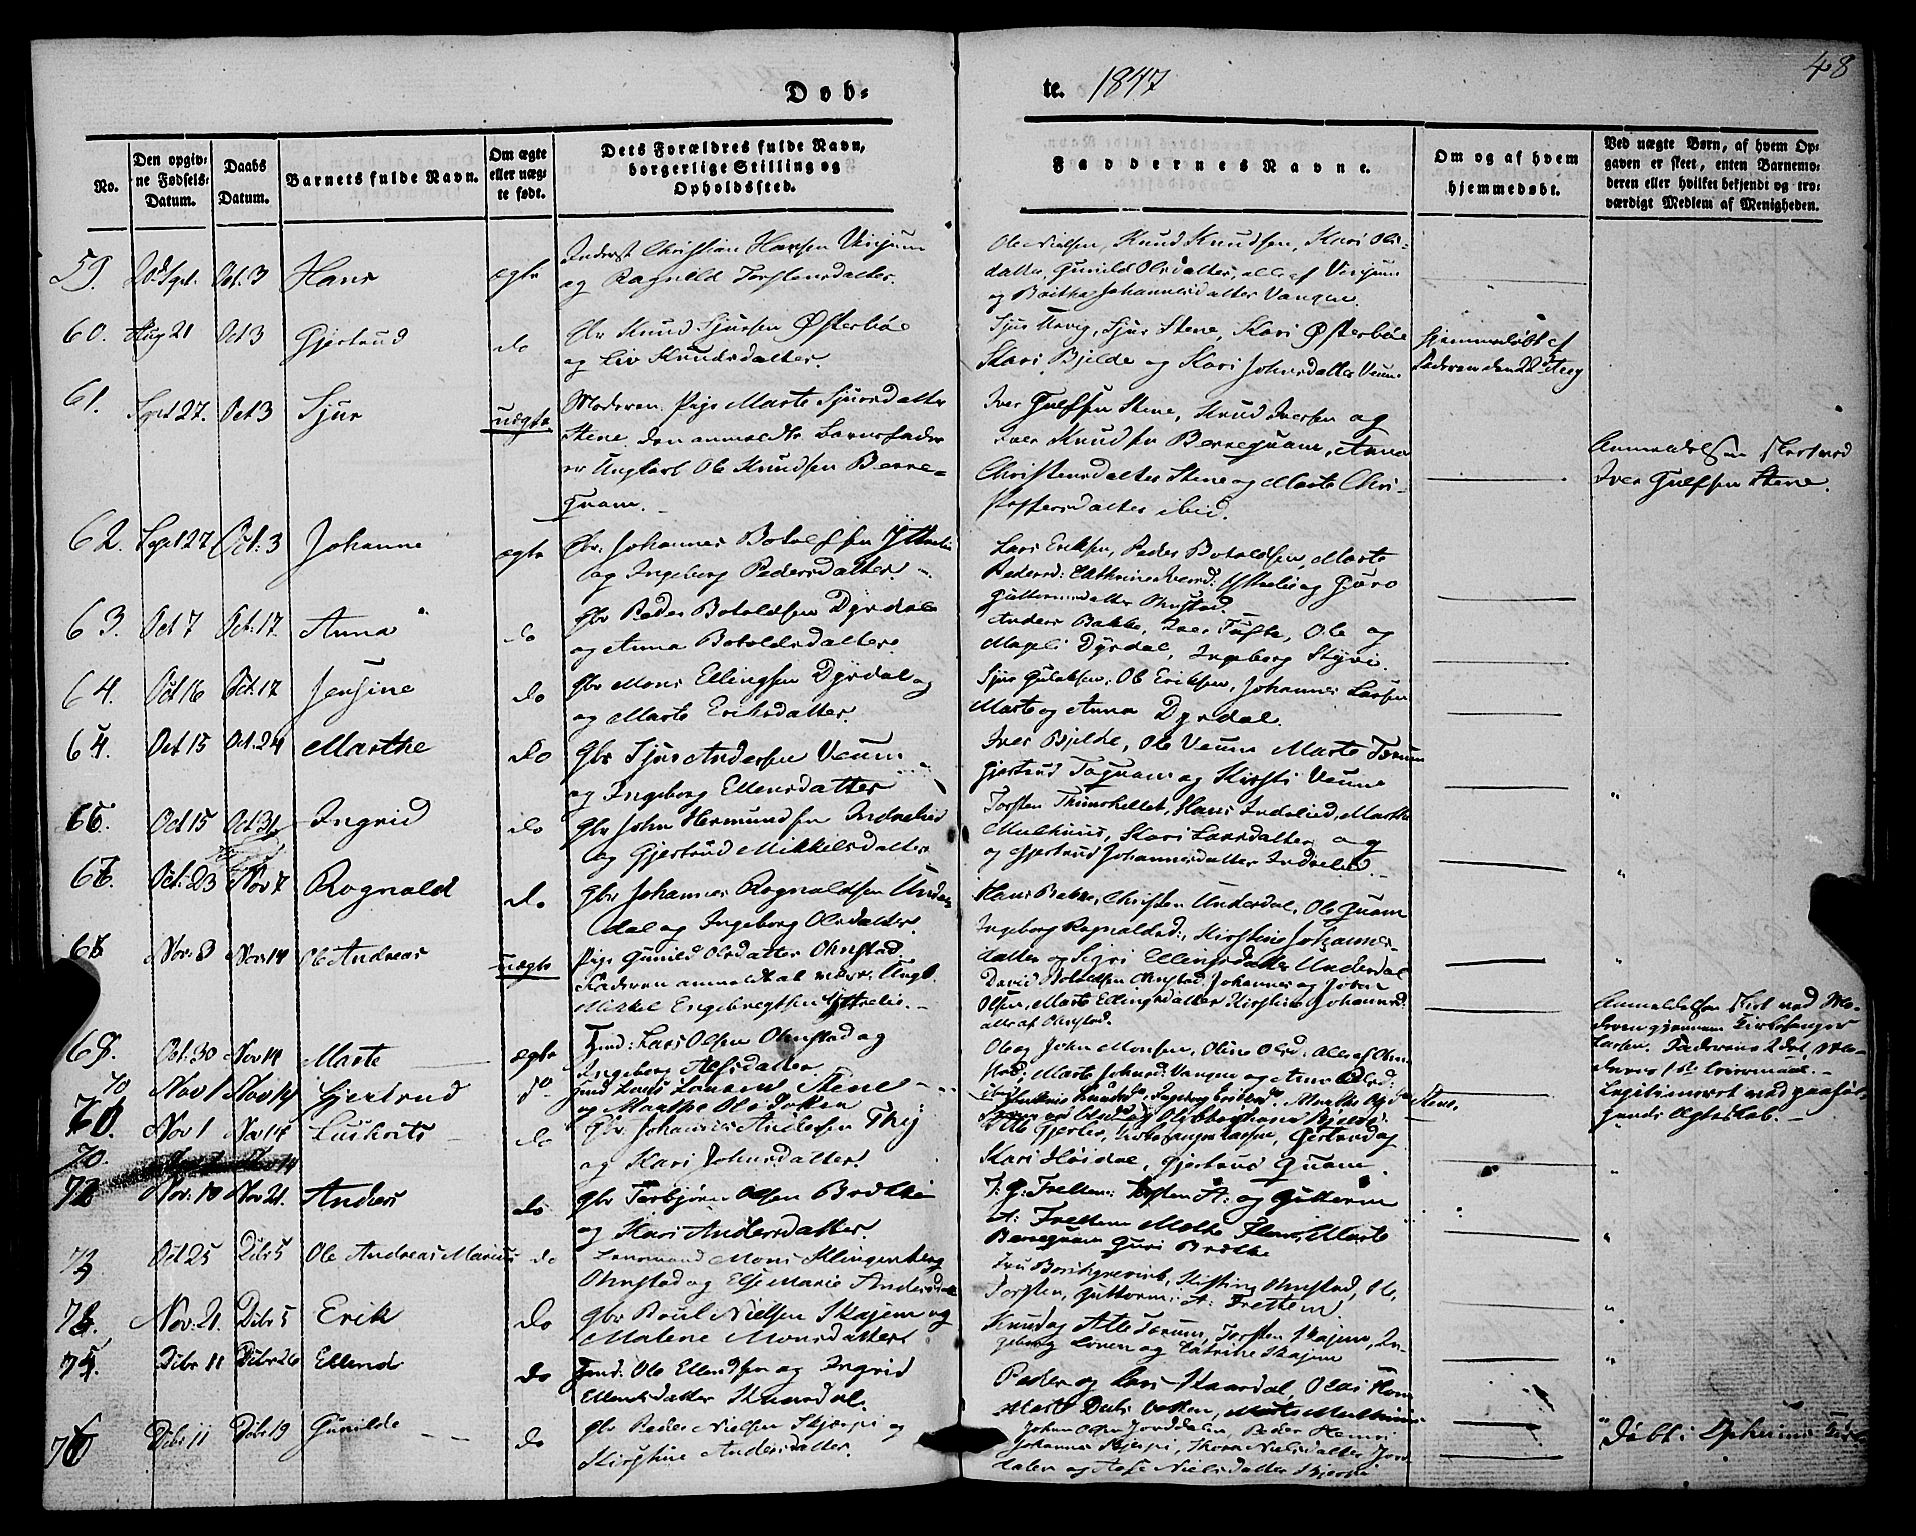 48
Døb-
te. 1847
No.
Den opgiv-
ne Fødsels-
Datum.
Daabs
Datum.
Barnets fulde Navn.
Om ægte
eller uæg-
te født.
Dets Forældres fulde Navn,
borgerlige Stilling og
Opholdssted.
Faddernes Navne.
Om og af hvem
hjemmedøbt.
Ved uægte Børn, af hvem Op-
gaven er skeet, enten Barnemo-
deren eller hvilket bekjendt og tro-
værdigt Medlem af Menigheden.
59. Sept. Oct. 3 Hans ægte
Inderst Christian Hansen Vinjum
og Ragnild Torstensdatter.
Ole Nielsen, Knud Knudsen, Kari Ols-
datter, Gunild Olsdatter, alle af Vinjum
og Britha Johannesdatter Vangen.
60. Aug 21 Oct 3 Gjertrud do
Gbr Knud Sjursen Østerbøe
og Liv Knudsdatter.
Sjur Stene, Kari Østerbøe
Kari Bjelde og Kari Johnsdatter Veum
Hjemmedøbt af
Faderen den 22de Aug
61. Sept 27. Oct 3 Sjur uægte
Moderen: Pige Marte Sjursdatter
Stene, den anmeldte Barnefader
er Ungkarl Ole Knudsen Berre-
Quam.
Iver Gulfsen Stene, Knud Iversen og
Iver Knudsen Berrequam, Anna
Christensdatter Stene og Marte Chri-
stensdatter ibid.
Anmeldelsen skeet ved
Iver Gulfsen Stene.
62. Sept 27 Oct: 3 Johanne ægte
Gbr. Johannes Botolfsen Ytrelie
og Ingeborg Pedersdatter.
Lars Eriksen, Peder Botoldsen, Marte
Pedersd: Cathrine Iversd: Ytrelie og Guro
Guttormsdatter Ohnstad.
63. Oct 7 Oct: 17 Anna do
Gbr Peder Botoldsen Dyrdal
og Anna Botoldsdatter.
Anders Bakke, Iver Tufte, Ole og
Mageli Dyrdal, Ingeborg Styvi.
64. Oct 16 Oct. 17 Jensine do
Gbr Mons Ellingsen Dyrdal og
og Marte Eriksdatter.
Sjur Gulaksen, Ole Eriksen, Johannes Larsen
Marte og Anna Dyrdal.
64. Oct 15 Oct. 24 Marthe do
Gbr Sjur Andersen Veum
og Ingeborg Ellensdatter
Iver Bjelde, Ole Veum Marte Terum
Gjertrud Toquam og Kirsti Veum
66. Oct 15 Oct 31 Ingrid do
Gbr John Hermundsen Indrelied
og Gjertrud Mikkelsdatter
Torsten Hans Indrelied, Marthe
Melhuus, Kari Larsdatter og
og Gjertrud Johannesdatter Indrelie.
67. Oct: 23 Nov 7 Rognald do
Gbr Johannes Rognaldsen Under-
dal og Ingeborg Olsdatter.
Hans Bakke, Christen Underdal, Ole Quam
Ingeborg Rognaldsd:, Kirstine Johannes-
datter og Sigri Ellingsdatter Underdal
68 Nov. 3 Nov. 14 Ole Andreas uægte
Pige Gunild Olsdatter Ohnstad.
Faderen anmeldt at være: Ungk.
Mikkel Engebregtsen Ytrelie.
David Botoldsen Ohnstad, Johannes og John
Olsen, Marte Ellingsdatter Kirstine Johannesd:
alle af Ohnstad.
Anmeldelsen skeet ved Mo-
deren gjennem Kirkesanger
Larsen. Faderens 2det, Mo-
derens 1ste Leiermaal.
Legitimeret ved paaføl-
gende Ægteskab.
69. Oct: 30 Nov 14 Marte ægte
Hmd: Lars Olsen Ohnstad og
Ingeborg Alfsdatter.
Ole og John Monsen, Oline Olsd: Alle af Ohn-
stad: Marte Johnsd: Vangen og Anna Olsd:
70 Nov 1 Nov 14 Gjertrud do
Hmd Lars Larsen Stene
og Marthe Olsdatter
Stene.
Nov 1 Nov 14 do
Gbr. Johannes Andersen
og Kari Johnsdatter.
Kari Høidal, Gjertrud Quam.
70.
72 Nov: 10 Nov 21. Anders do
Gbr Torbjørn Olsen Brække
og Kari Andersdatter.
J: G: Fretem: Torsten A: og Guttorm
A: Fretem Mette Marte
Berrequam Guri Brække
73 Oct 25 Dcbr 5 Ole Andreas Marius do
Lensmand Mons Klingenberg
Ohnstad og Else Marie Andersd
Fru Kristine Ohnstad, Ole,
Torsten, Guttorm: A: Fretem
74. Nov. 21. Dcbr 5 Erik do
Gbr Poul Nielsen Skajem og
Malene Monsdatter
Knud og Atle Terum, Torsten Skajem, In-
geborg Lonen og Cathrine Skajem
75. Dcbr 11 Dcbr 26 Ellend do
Hmd: Ole Ellendsen og Ingrid
Ellensdatter Skaardal.
Peder og Lars Skaardal, Olai
Marte Marte Melhuus
76 Dcbr 11 Dcbr 19 Gunilde do
Gbr Peder Nielsen Skjerpi og
Kirstine Andersdatter.
John Olsen Jorddalen, Peder
Johannes Skjerpi, Nielsdatter Jord-
dalen og Aase Nielsdatter Skjerpi
Døbt i